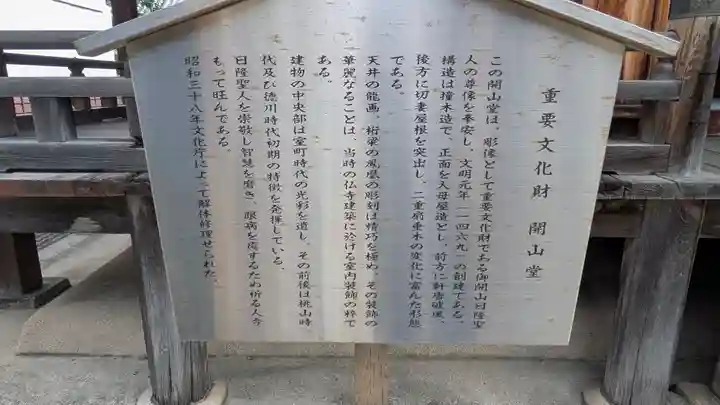 重要文化財　開山堂
この開山堂は、彫像として重要文化財である御開山日隆聖
人の尊像を奉安し、文明元年（一四六九）の創建である。
構造は撞木造で、正面を入母屋造とし、前方に軒唐破風、
後方に切妻屋根を突出し、二重扇垂木の変化に富んだ形態
である。
天井の龍画、桁梁の鳳凰の彫刻は精巧を極め、その装飾の
華麗なることは、当時の仏寺建築に於ける室内装飾の粋で
ある。
建物の中央部は室町時代の光彩を遺し、その前後は桃山時
代及び徳川時代初期の特徴を発揮している。
日隆聖人を崇敬し智慧を磨き、眼病を医するため祈る人今
もって旺んである。
昭和三十八年文化庁によって解体修理せられた。